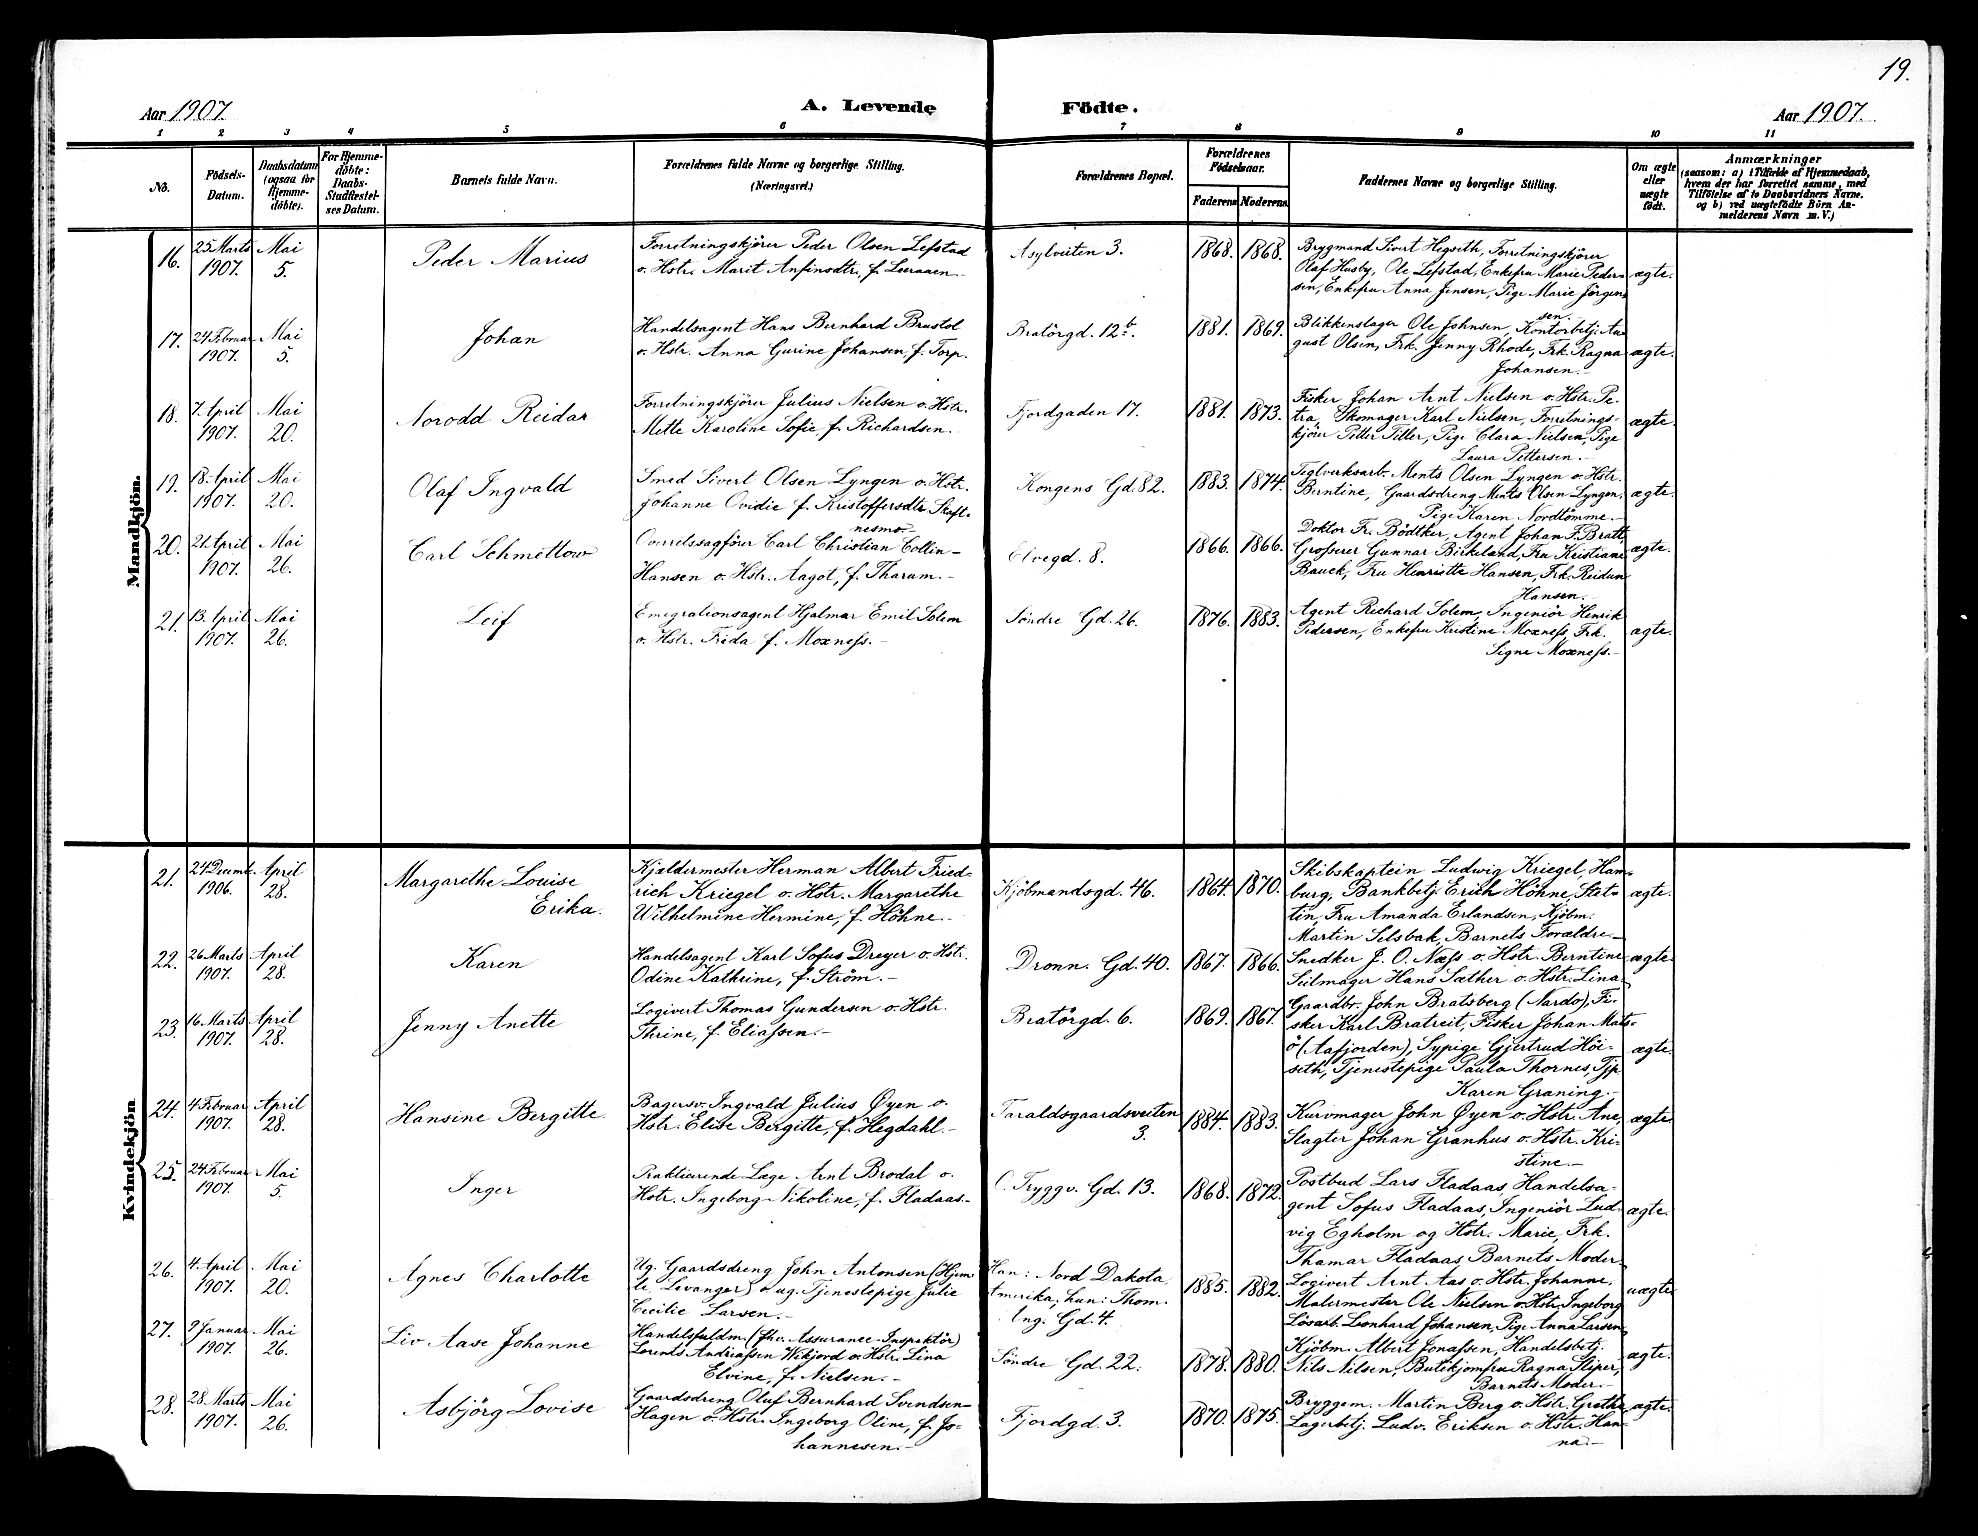 19.
Aar 1907.
A. Levende Födte.
Aar 1907.
1 2 3 4 5 6 7 8 9 10 11
No.
Födsels-Datum.
Daabsdatum (ogsaa for Hjemme-döbte).
For Hjemme-döbte: Daabs-Stadfæstel-ses Datum.
Barnets fulde Navn.
Forældrenes fulde Navne og borgerlige Stilling.
(Næringsvei.)
Forældrenes Bopæl.
Forældrenes Födselsaar.
Faderens Moderens
Faddernes Navne og borgerlige Stilling.
Om ægte eller uægte födt.
Anmærkninger
(saasom: a) i Tilfælde af Hjemmedaab,
hvem der har forrettet samme, med
Tilföielse af to Daabsvidners Navne.
og b) ved uægtefödte Börn An-
melderens Navn m. V.)
Mandkjön.
16. 25 Marts 1907. Mai 5. Peder Marius
Forretningskjörer Peder Olsen Lefstad
o. Hstr. Marit Anfinsdtr. f. Leeraaen
Asylveiten 3. 1868. 1868.
Brygmand Sivert Hegseth, Forretningskjörer
Olaf Husby, Ole Lefstad, Enkefru Marie Peder-
sen, Enkefru Anna Jensen, Pige Marie Jörgen
sen.
ægte.
17. 24 Februar 1907. Mai 5. Johan
Handelsagent Hans Bernhard Brustol
o. Hstr. Anna Gurine Johansen f. Torp.
Bratörgd. 12b. 1881. 1869.
Blikkenslager Ole Johnsen, Kontorbetj. Au-
gust Olsen, Frk. Jenny Rhode, Frk. Ragna
Johansen.-
ægte.
18. 7. April 1907. Mai 20. Norodd Reidar
Forretningskjörer Julius Nielsen o. Hstr.
Mette Karoline Sofie f. Richardsen.
Fjordgaden 17. 1881. 1873.
Fisker Johan Arnt Nielsen o. Hstr. Pe-
tra, Skomager Karl Nielsen, Forretnings-
kjörer Petter Tiller, Pige Clara Nielsen, Pige
Laura Pettersen.-
ægte.
19. 18. April 1907. Mai 20. Olaf Ingvald
Smed Sivert Olsen Lyngen o. Hstr.
Johanne Ovidie f. Kristoffersdtr Skaft-
nesmo.
Kongens Gd. 82. 1883. 1874.
Teglverksarb. Ments Olsen Lyngen o. Hstr.
Berntine, Gaardsdreng Ments Olsen Lyngen,
Pige Karen Nordtömme.-
ægte.
20. 21. April 1907. Mai 26. Carl Schmettow
Overretssagförer Carl Christian Collin-
Hansen o. Hstr. Aagot, f. Tharum.-
Elvegd. 8. 1866. 1866.
Doktor Fr. Bödtker, Agent Johan F. Bratt
Grosserer Gunnar Birkeland, Fru Kristiane
Bauck, Fru Henriette Hansen, Frk. Reidun
Hansen.-
ægte.
21. 13. April 1907. Mai 26. Leif
Emigrationsagent Hjalmar Emil Solem
o. Hstr. Frida f. Moxness.-
Söndre Gd. 26. 1876. 1883.
Agent Richard Solem, Ingeniör Henrik
Pedersen, Enkefru Kristine Moxness, Frk.
Signe Moxness.-
ægte.
Kvindekjön
21. 24 Decemb. 1906. April 28. Margarethe Louise
Erika.
Kjældermester Herman Albert Fried-
rich Kriegel o. Hstr. Margarethe
Wilhelmine Hermine, f. Höhne.-
Kjöbmandsgd. 46. 1864. 1870.
Skibskaptein Ludwig Kriegel, Ham-
burg, Bankbetj. Erich Höhne, Stet-
tin, Fru Amanda Erlandsen, Kjöbm.
Martin Selsbak, Barnets Forældre-
ægte.
22. 26 Marts 1907. April 28. Karen
Handelsagent Karl Sofus Dreyer o. Hstr.
Odine Kathrine, f. Ström.-
Dronn. Gd. 40. 1867. 1866.
Snedker J. O. Næss o. Hstr. Berntine
Seilmager Hans Sæther o. Hstr. Lina
ægte.
23. 16 Marts 1907. April 28. Jenny Anette
Logivert Thomas Gundersen o. Hstr.
Thrine, f. Eliassen.-
Bratörgd. 6. 1869. 1867.
Gaardbr. John Bratsberg (Nardo), Fi-
sker Karl Bratreit, Fisker Johan Mats-
ö (Aafjorden), Sypige Gjertrud Höi-
seth, Tjenestepige Paula Thornes, Tjp
Karen Graning.-
ægte.
24. 4 Februar 1907. April 28. Hansine Bergitte.
Bagersv. Ingvald Julius Øyen o.
Hstr. Elise Bergitte, f. Hegdahl.-
Taraldsgaardsveiten
3. 1884. 1883.
Kurvmager John Øyen o. Hstr. Ane,
Slagter Johan Granhus o. Hstr. Kri-
stine.-
ægte.
25. 24 Februar 1907. Mai 5. Inger
Praktiserende Læge Arnt Brodal o.
Hstr. Ingeborg Nikoline, f. Fladaas-
O. Tryggv. Gd. 13. 1868. 1872.
Postbud Lars Fladaas, Handelsa-
gent Sofus Fladaas, Ingeniör Lud-
vig Egholm og Hstr. Marie, Frk.
Thamar Fladaas, Barnets Moder
ægte.
26. 4. April 1907. Mai 20. Agnes Charlotte
Ug. Gaardsdreng John Antonsen (Hjem-
le. Levanger) o. ug. Tjenestepige Julie
Cecilie Larsen.-
Han: Nord Dakota,
Amerika; hun: Thom.
Ang. Gd. 4. 1885. 1882.
Logivert Arnt Aas o. Hstr. Johanne,
Malermester Ole Nielsen o. Hstr. Ingeborg
Lösarb. Leonhard Johansen, Pige Anna Larsen
uægte.
27. 9 Januar 1907. Mai 26. Liv Aase Johanne
Handelsfuldm. (fhv. Assurance-Inspektör)
Lorents Andreassen Wikjord o. Hstr. Lina
Elvine, f. Nielsen.-
Söndre Gd. 22. 1878. 1880.
Kjöbm. Albert Jonassen, Handelsbetj.
Nils Nilsen, Butikjomfru Ragna Sliper,
Barnets Moder.-
ægte.
28. 28 Marts 1907. Mai 26. Asbjörg Lovise
Gaardsdreng Oluf Bernhard Svendsen
Hagen o. Hstr. Ingeborg Oline, f. Jo-
hannesen.-
Fjordgd. 3. 1870. 1875.
Bryggem. Martin Berg o. Hstr. Grethe
Lagerbetj. Ludv. Eriksen o. Hstr. Han-
na.-
ægte.